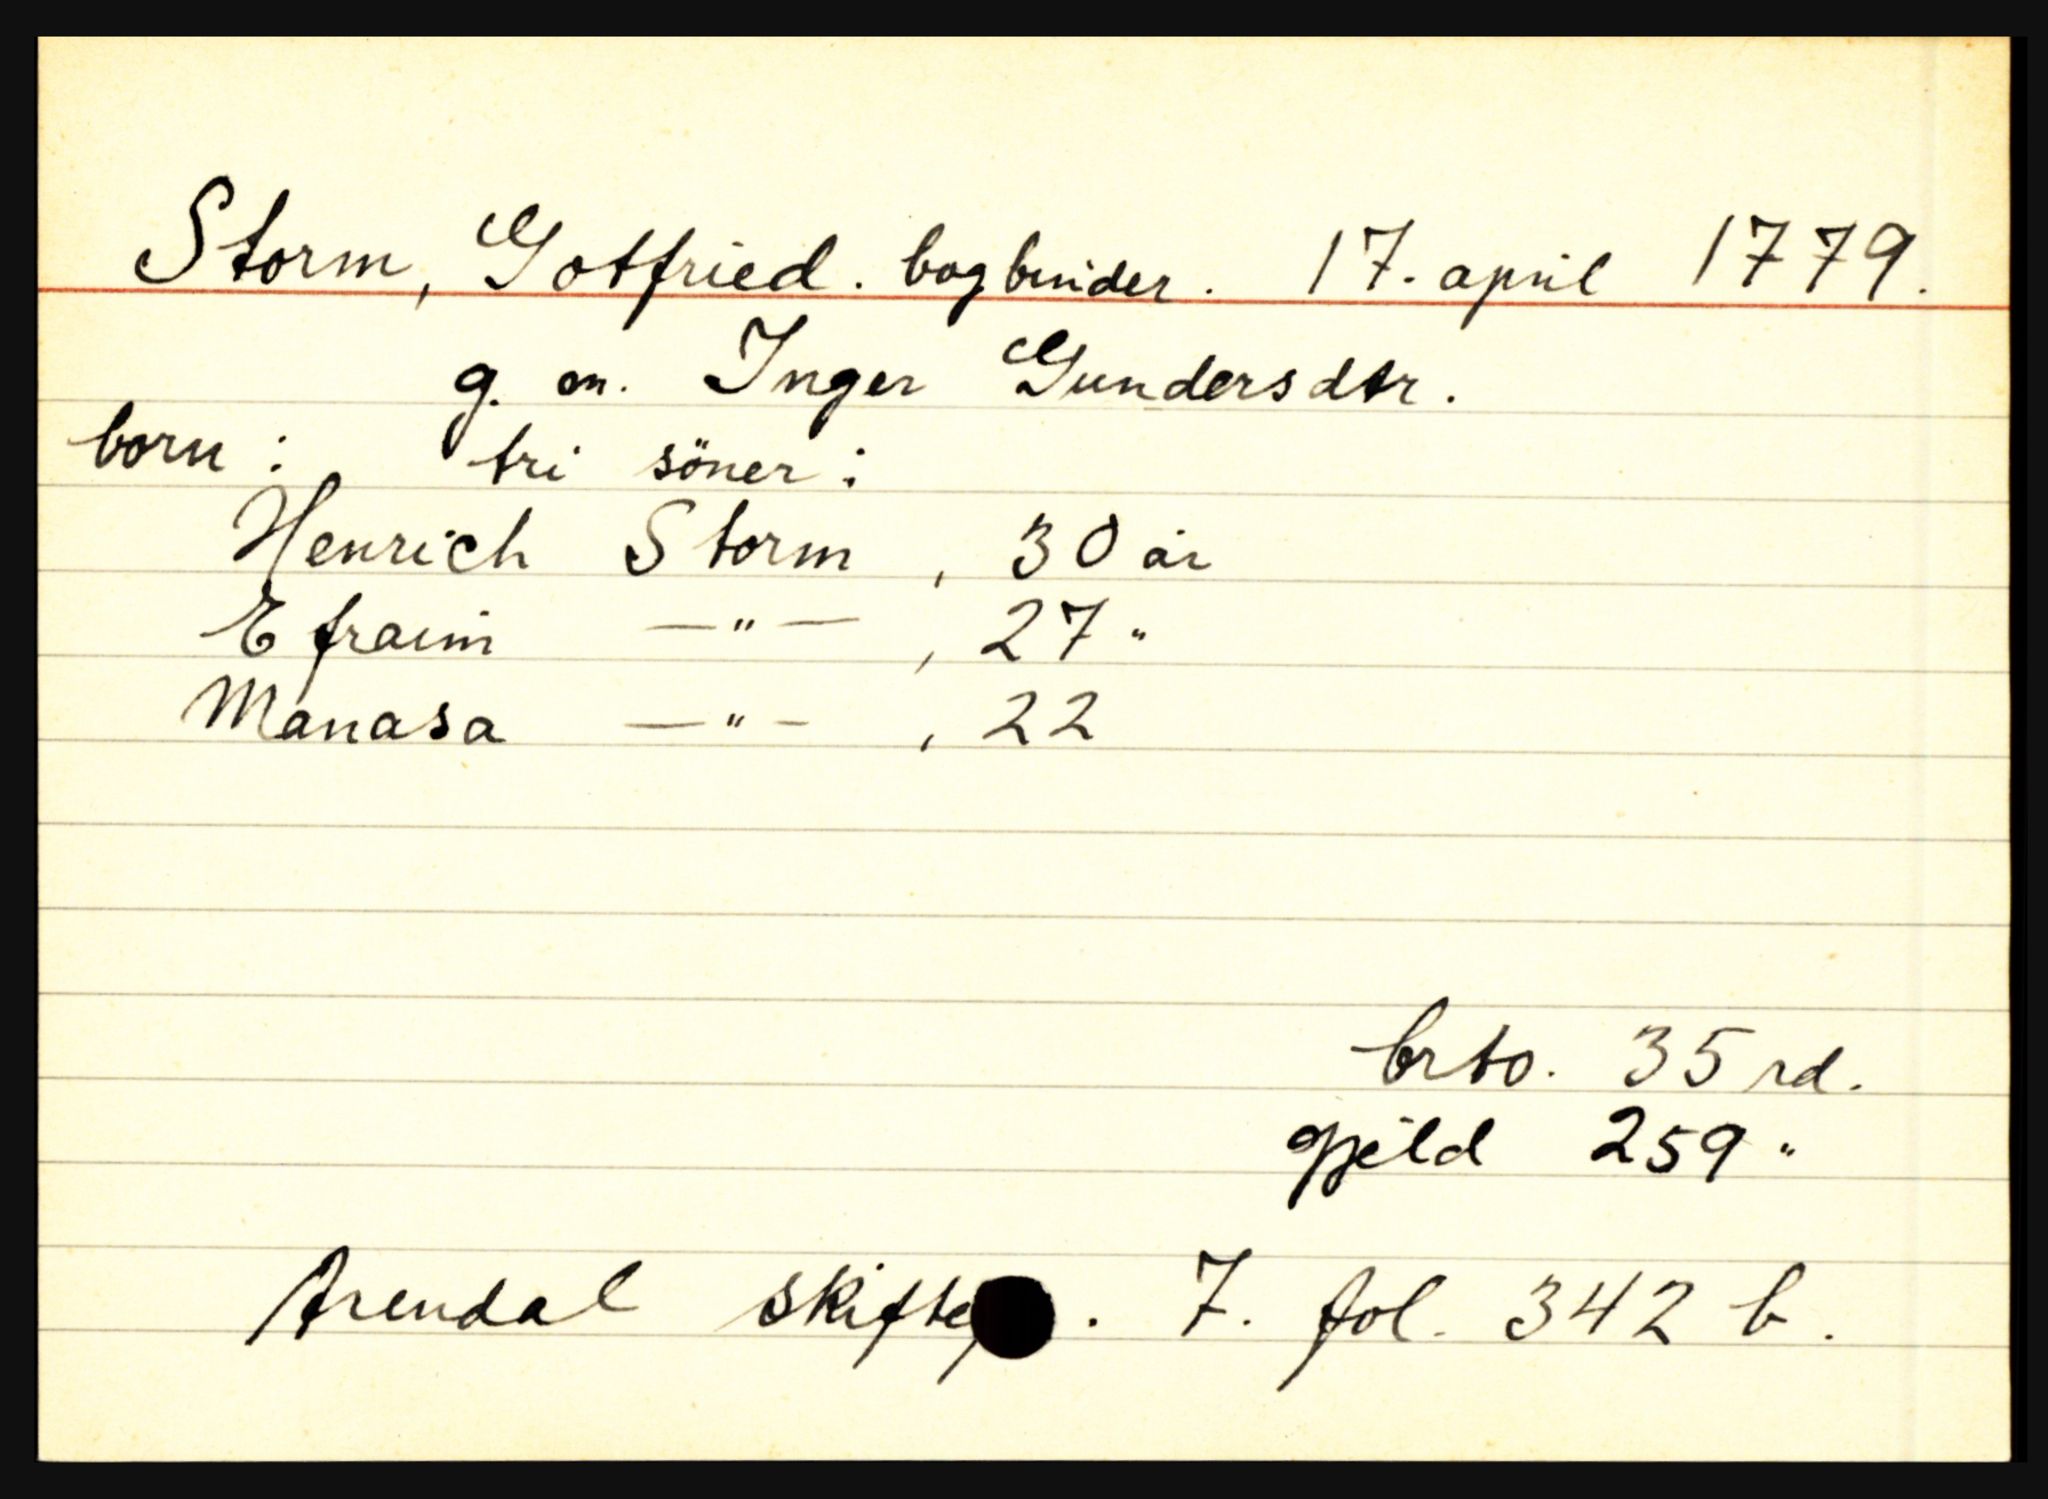 Storm, Gotfried. bogbinder. 17. april 1779.
g. m. Inger Gundersdtr.
born: tri söner:
Henrich Storm, 30 år
Efraim —"—, 27 "
Manasa —"—, 22
brto. 35 rd.
gjeld 259 "
Arendal . 7. fol. 342 b.